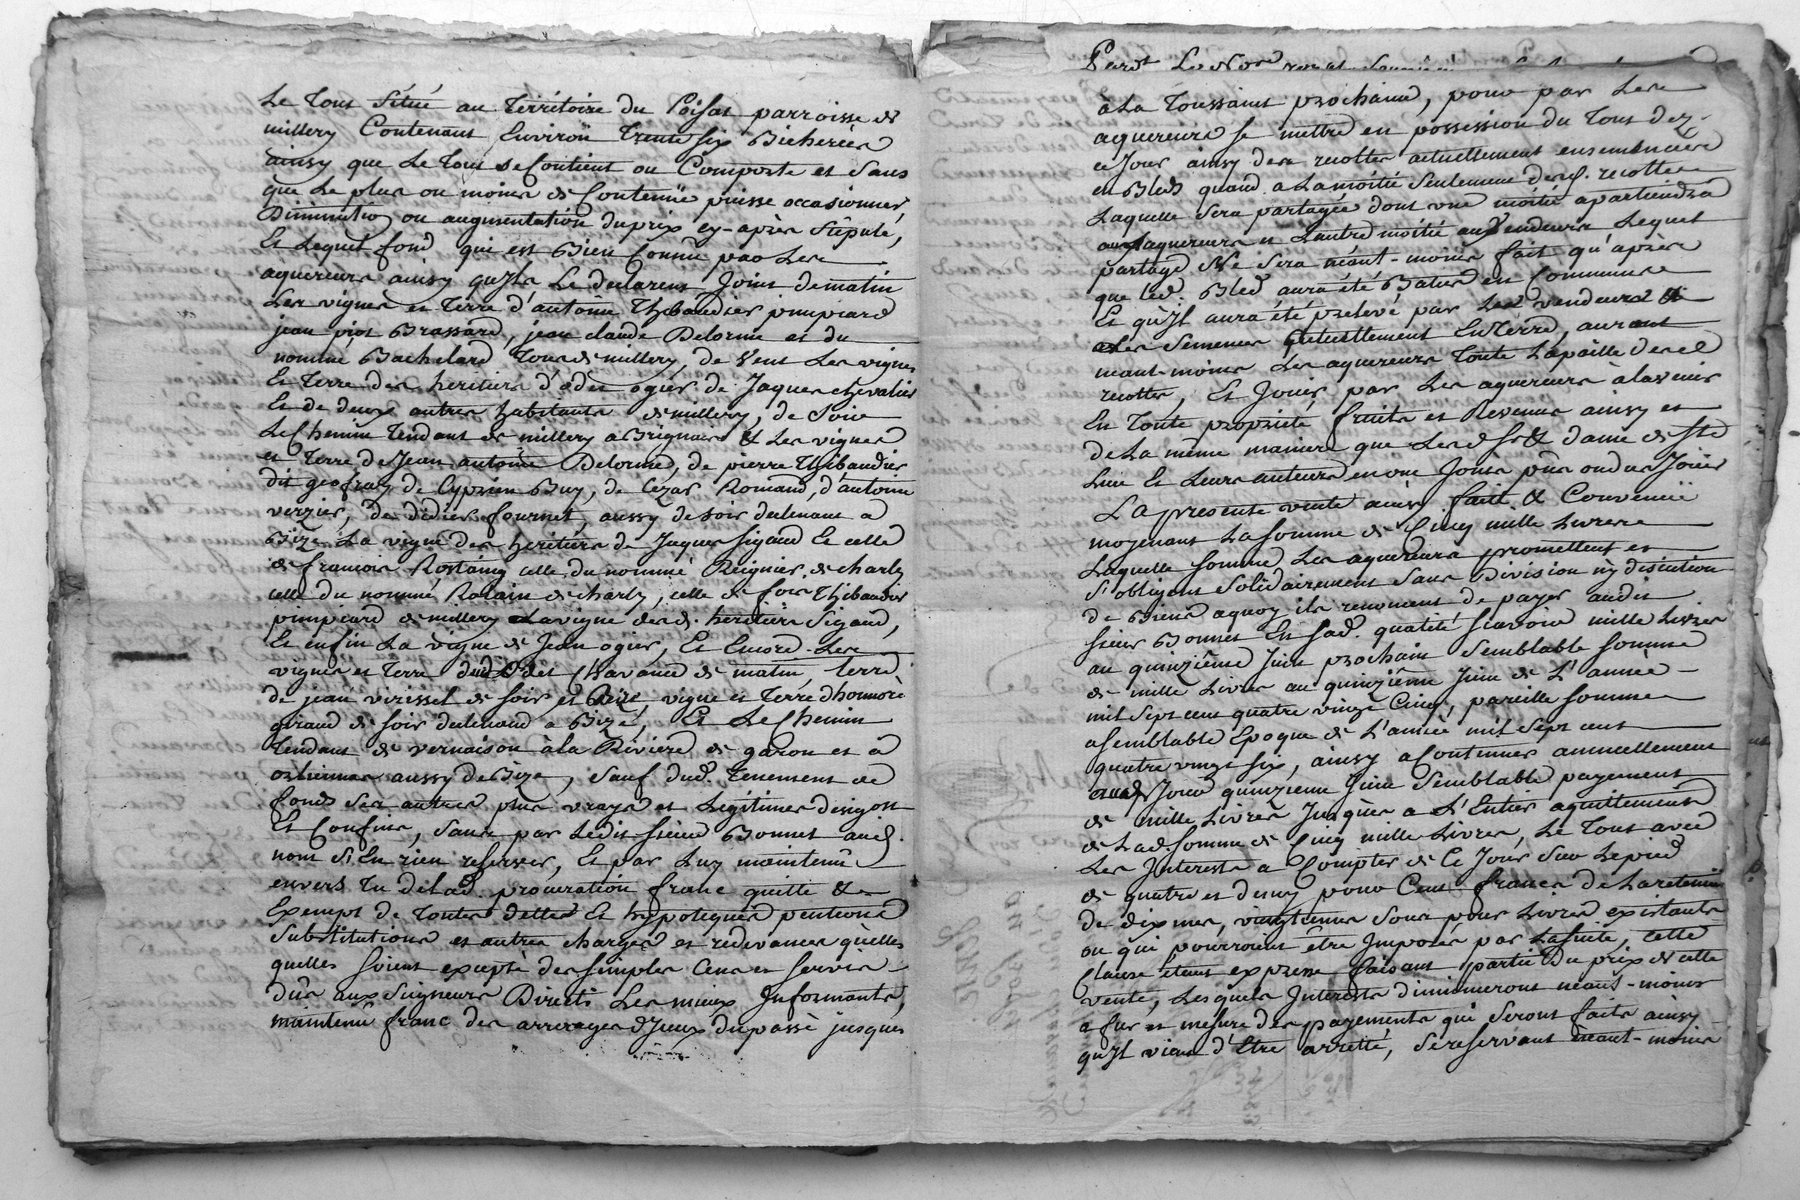 Le Tout Sitüé au Térritoire du Poisat parroisse de
millery Contenant Environ Trente six Bicherées
ainsy que Le Tout se Contient ou Comporte et Sans
que Le plus ou moins de Contenüe puisse occasionner,
Diminution ou augmentation du prix cy-après Stipulé,
Et Lequel fond qui est Bien Connu par Les
aquereurs ainsy qu'Ils Le déclarent Joint de matin
Les vignes et Terre d'antoine Thibaudier pimpiard
jean piot Brassard, jean claude Delorme et du
nommé Bachelard Tous de millery, de Vent Les vignes
Et Terre des heritiers d'odet ogier de Jaques chevalier
Et de deux autres habitants de millery, de Soir
Le Chemin Tendant de millery a Brignais & Les vignes
et Terre de Jean antoine Delorme, de pierre Thibaudier
dit geofray de Cyprien Buy, de Cezar Romand, d'antoine
verzier, de didier fournet, aussy de soir declinant a
Bize La vigne des heritiers de Jaques Sigaud Et celle
de francois Rostaing celle du nommé Reignier de charly
celle du nommé Rolain de charly, celle de foir Thibaudier
pimpiard de millery La vigne desd. heritiers Sigaud,
Et enfin La vigne de Jean ogier, Et Encore Les
vignes et Terre dud. Odet Chavance de matin, terre
de jean virisset de soir et Bize, vigne et Terre d'honnoré
giraud de soir declinant a Bize, Et Le Chemin
Tendant de vernaison à la Riviere de garon et a
orlienas aussy de Bize, Sauf dud. Tenement de
fonds Ses autres plus vrays et Legitimes designon
Et Confins, Sans par Ledit Sieur Bonnet aud.
nom S'En rien reserver, Et par Luy maintenû
envers Tu de lad. procuration franc quitte &
Exempt de Toutes dettes Et hypoteques pentions
Substitutions et autres charges et redevances qu'elles
quelles soient excepté des simples Cens et servis
dûs aux Seigneurs Directs Les mieux Informants,
maintenu franc des arrerages d'Iceux du passé jusques
Pard. Le No
à La Toussaint prochaine, pour par Les
aquereurs se mettre en possession du Tout dez-
ce Jour ainsy des recoltes actuellement ensemencées
en Bled quand a La moitié Seulement desd. recoltes
Laquelle Sera partagée dont une moitié apartiendra
aux aquereurs et L'autre moitié aux Vendeurs Lequel
partage Ne Sera néant-moins fait qu'après
que Led. Bled aura été Batu en Commun
Et qu'Il aura été prelevé par Les vendeurs
Les Semences actuellement En Terre, auront
néant-moins Les aquereurs Toute La paille desd.
recoltes, Et Jouir par Les aquereurs à l'avenir
En Toute proprieté fruits et Revenus ainsy et
de La même maniere que Lesd Sr & dame de Ste
Luce Et Leurs auteurs en ont Jouis pûs ou dus Joüir
La presente vente ainsy fait & Convenüe
moyenant La somme de Cinq mille Livres
Laquelle somme Les aquereurs promettent et
S'obligent Solidairement Sans Division n'y discution
de Biens aquoy ils renoncent de payer audit
sieur Bonnet En sad. qualité scavoir mille Livres
au quinzième Juin prochain Semblable somme
de mille Livres au quinzième Juin de L'année
mil Sept cent quatre vingt Cinq, pareille somme
a semblable Epoque de L'année mil Sept cent
quatre vingt six, ainsy a Continuer annuellement
aud. Jour quinzieme Juin Semblable payement
de mille Livres Jusques a L'Entier aquittement
de Lad. somme de Cinq mille Livres, Le Tout avec
Les Interests a Compter de Ce Jour Sur Le pied
de quatre et demy pour Cent francs de La retenüe
des dixmes, vingtiemes Sous pour Livres existants
ou qui pourroient être Imposés par La suite, cette
Clause étant expresse faisant partie Du prix de cette
vente, Lesquels Interests diminueront néant-moins
a fur et mesure des payements qui Seront faits ainsy
qu'Il vient d'Etre arretté, Se reservant néant-moins